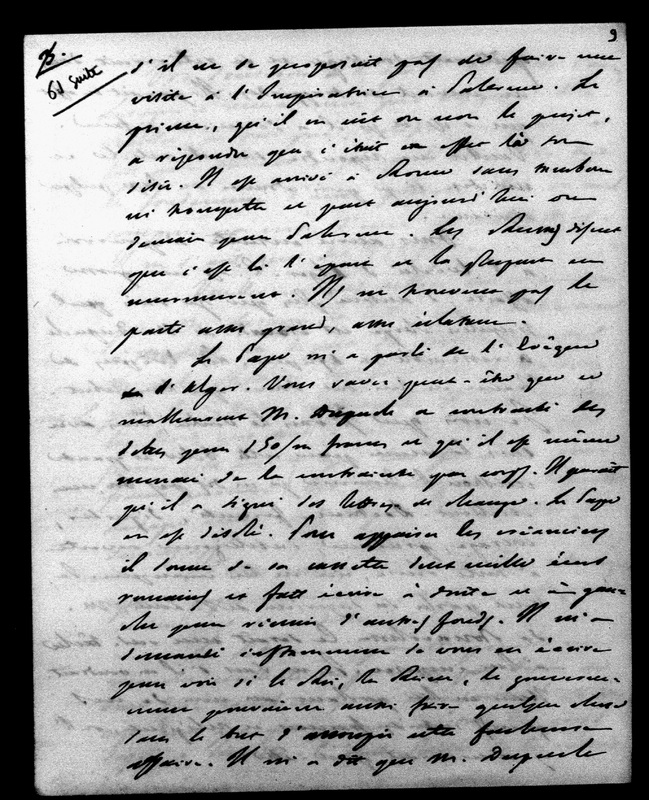 9
61 suite
s'il ne se proposait pas de faire une
visite à l'Impératrice à Palerme. Le
prince, qu'il en eût ou non le projet,
a répondu que c'était en effet là son
désir. Il est arrivé à Rome sans tambour
ni trompette et part aujourd'hui ou
demain pour Palerme. Les Russes disent
que c'est là l'époux et la
murmurent. Ils ne trouvent pas le
parti assez grand, assez éclatant.
Le Pape m'a parlé de l'Évêque
d'Alger. Vous savez peut-être que ce
malheureux M. Dupuch a contracté des
dettes pour 150/m francs et qu'il est même
menacé de la contrainte par corps. Il paraît
qu'il a signé des lettres de change. Le Pape
en est désolé. Pour appaiser les créanciers
il donne de sa cassette mille écus
romains et fait écrire à droite et à gau-
che pour réunir d'autres fonds. Il m'a
demandé instamment de vous en écrire
pour voir si le Roi, la Reine, le gouverne-
ment pourraient aussi faire quelque chose
dans le but d'assoupir cette fâcheuse
affaire. Il m'a dit que M. Dupuch